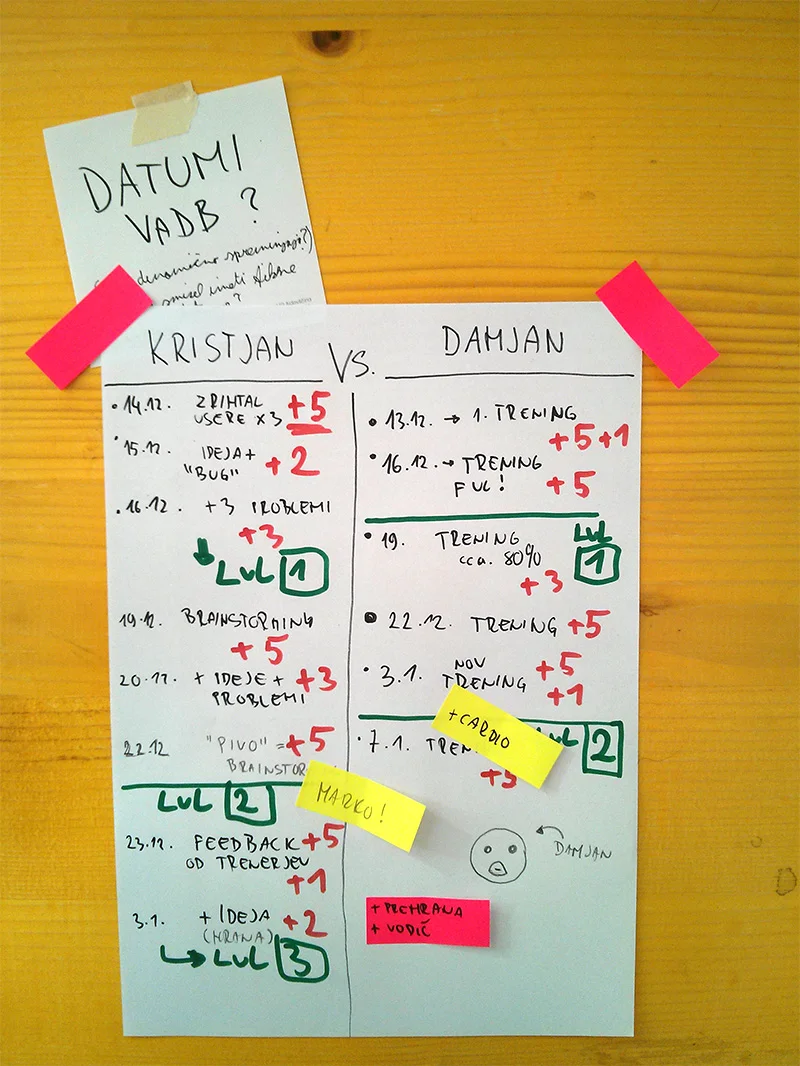 DATUMI
VADB?
dinamično spreminjajo?)
smisel imeti fiksne
KRISTJAN
VS.
DAMJAN
• 14.12. ZRIHTAL
USERE X3 +5
• 15.12. IDEJA +
"BUG" +2
• 16.12. +3 PROBLEMI
+3
LVL 1
19.12. BRAINSTORMING
+5
20.12. + IDEJE + +3
PROBLEMI
22.12 "PIVO" = +5
BRAINSTOR
LVL 2
MARKO!
23.12. FEEDBACK +5
OD TRENERJEV
+1
3.1. + IDEJA +2
(HRANA)
LVL 3
• 13.12. → 1. TRENING
+5 +1
• 16.12. → TRENING
FUL! +5
LVL
1
• 19. TRENING
cca. 80%
+3
• 22.12. TRENING +5
• 3.1. NOV +5
TRENING +1
+ CARDIO
LVL 2
• 7.1. TREN
DAMJAN
+ PREHRANA
+ VODIČ